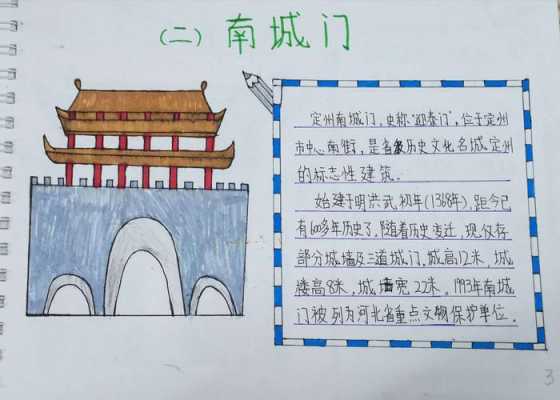 (二) 南城门
定州南城门,史称“迎泰门”,位于定州
市中心南街,是省级历史文化名城定州
的标志性建筑.
始建于明洪武初年(1368年),距今已
有600多年历史了,随着历史变迁,现仅存
部分城墙及三道城门,城高12米,城
楼高8米,城墙宽22米,1993年南城
门被列为河北省重点文物保护单位.
3